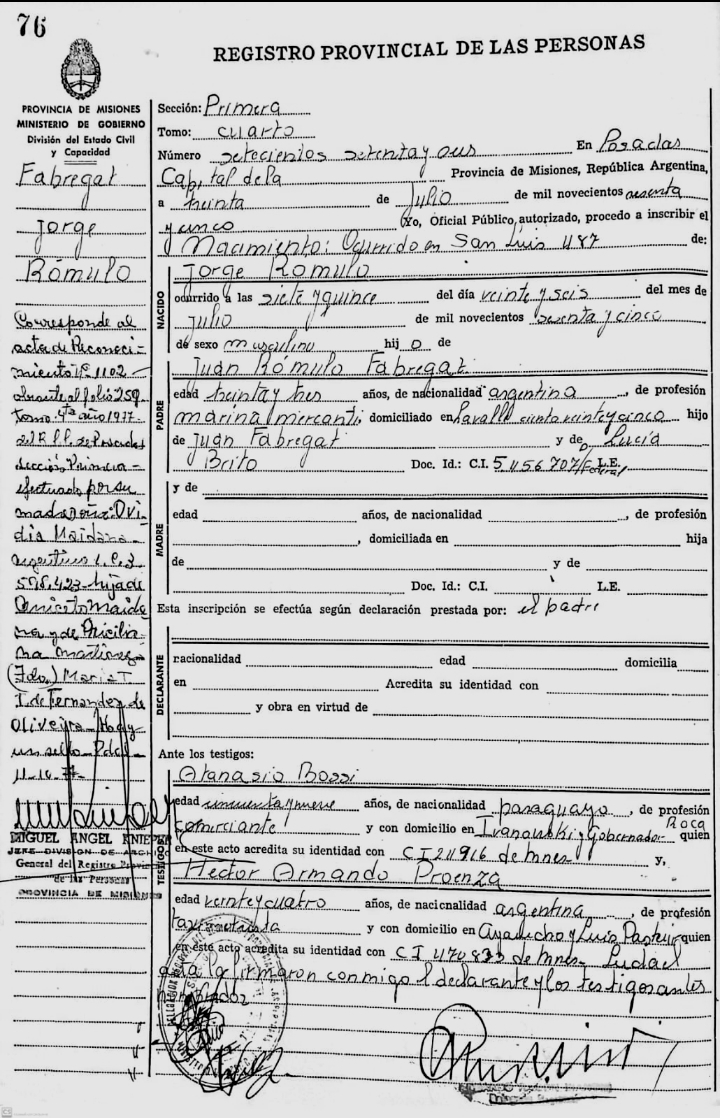 76
REGISTRO PROVINCIAL DE LAS PERSONAS
PROVINCIA DE MISIONES
MINISTERIO DE GOBIERNO
División del Estado Civil
y Capacidad
Fabregat
Jorge
Rómulo
Corresponde al
acta de Reconoci-
miento Nº 1102 -
al folio 259
tomo 4to año 1977
de Posadas
sección Primera -
efectuado por su
madre Ovi-
dia Maidana
argentina L.C. 2.
598.423 - hija de
Aniceto Maida
na y de
na Martinez -
(Fdo.) Maria T
T. de Fernandez de
Oliveyra - Hay
un sello - Pdas -
MIGUEL ANGEL KNIEPP
JEFE DIVISION DE ARCHIVO
General del Registro Provincial
de las Personas
PROVINCIA DE MISIONES
Sección: Primera
Tomo: cuarto
Número setecientos setenta y En Posadas
Capital de la Provincia de Misiones, República Argentina,
a treinta de Julio de mil novecientos sesenta
y cinco (Yo, Oficial Público, autorizado, procedo a inscribir el
Nacimiento: Ocurrido en San Luis 487 de:
NACIDO
Jorge Romulo
ocurrido a las siete y quince del día veinte y seis del mes de
Julio de mil novecientos sesenta y cinco
de sexo masculino hij o de
PADRE
Juán Rómulo Fabregat.
edad treinta y tres años, de nacionalidad argentina, de profesión
marina mercante domiciliado en Lavalle ciento veinte y cinco hijo
de Juán Fabregat y de Lucía
Brito Doc. Id.: C.I. 5456707/Federal L.E.
MADRE
y de
edad años, de nacionalidad, de profesión
, domiciliada en hija
de y de
Doc. Id.: C.I. L.E.
Esta inscripción se efectúa según declaración prestada por: el padre
DECLARANTE
nacionalidad edad domicilia
en Acredita su identidad con
y obra en virtud de
Ante los testigos:
TESTIGO
Atanasio Bossi
edad cincuenta y nueve años, de nacionalidad paraguayo, de profesión
comerciante y con domicilio en Ivanowski y Gobernador Roca quien
en este acto acredita su identidad con C I 211916 de Mnes - y,
Hector Armando Proenza
edad veinte y cuatro años, de nacionalidad argentina, de profesión
y con domicilio en Ayacucho y Luis Pasteur quien
en este acto acredita su identidad con C I 470833 de Mnes - Leída el
acta la firmaron conmigo el declarante y los testigos antes
nombrados